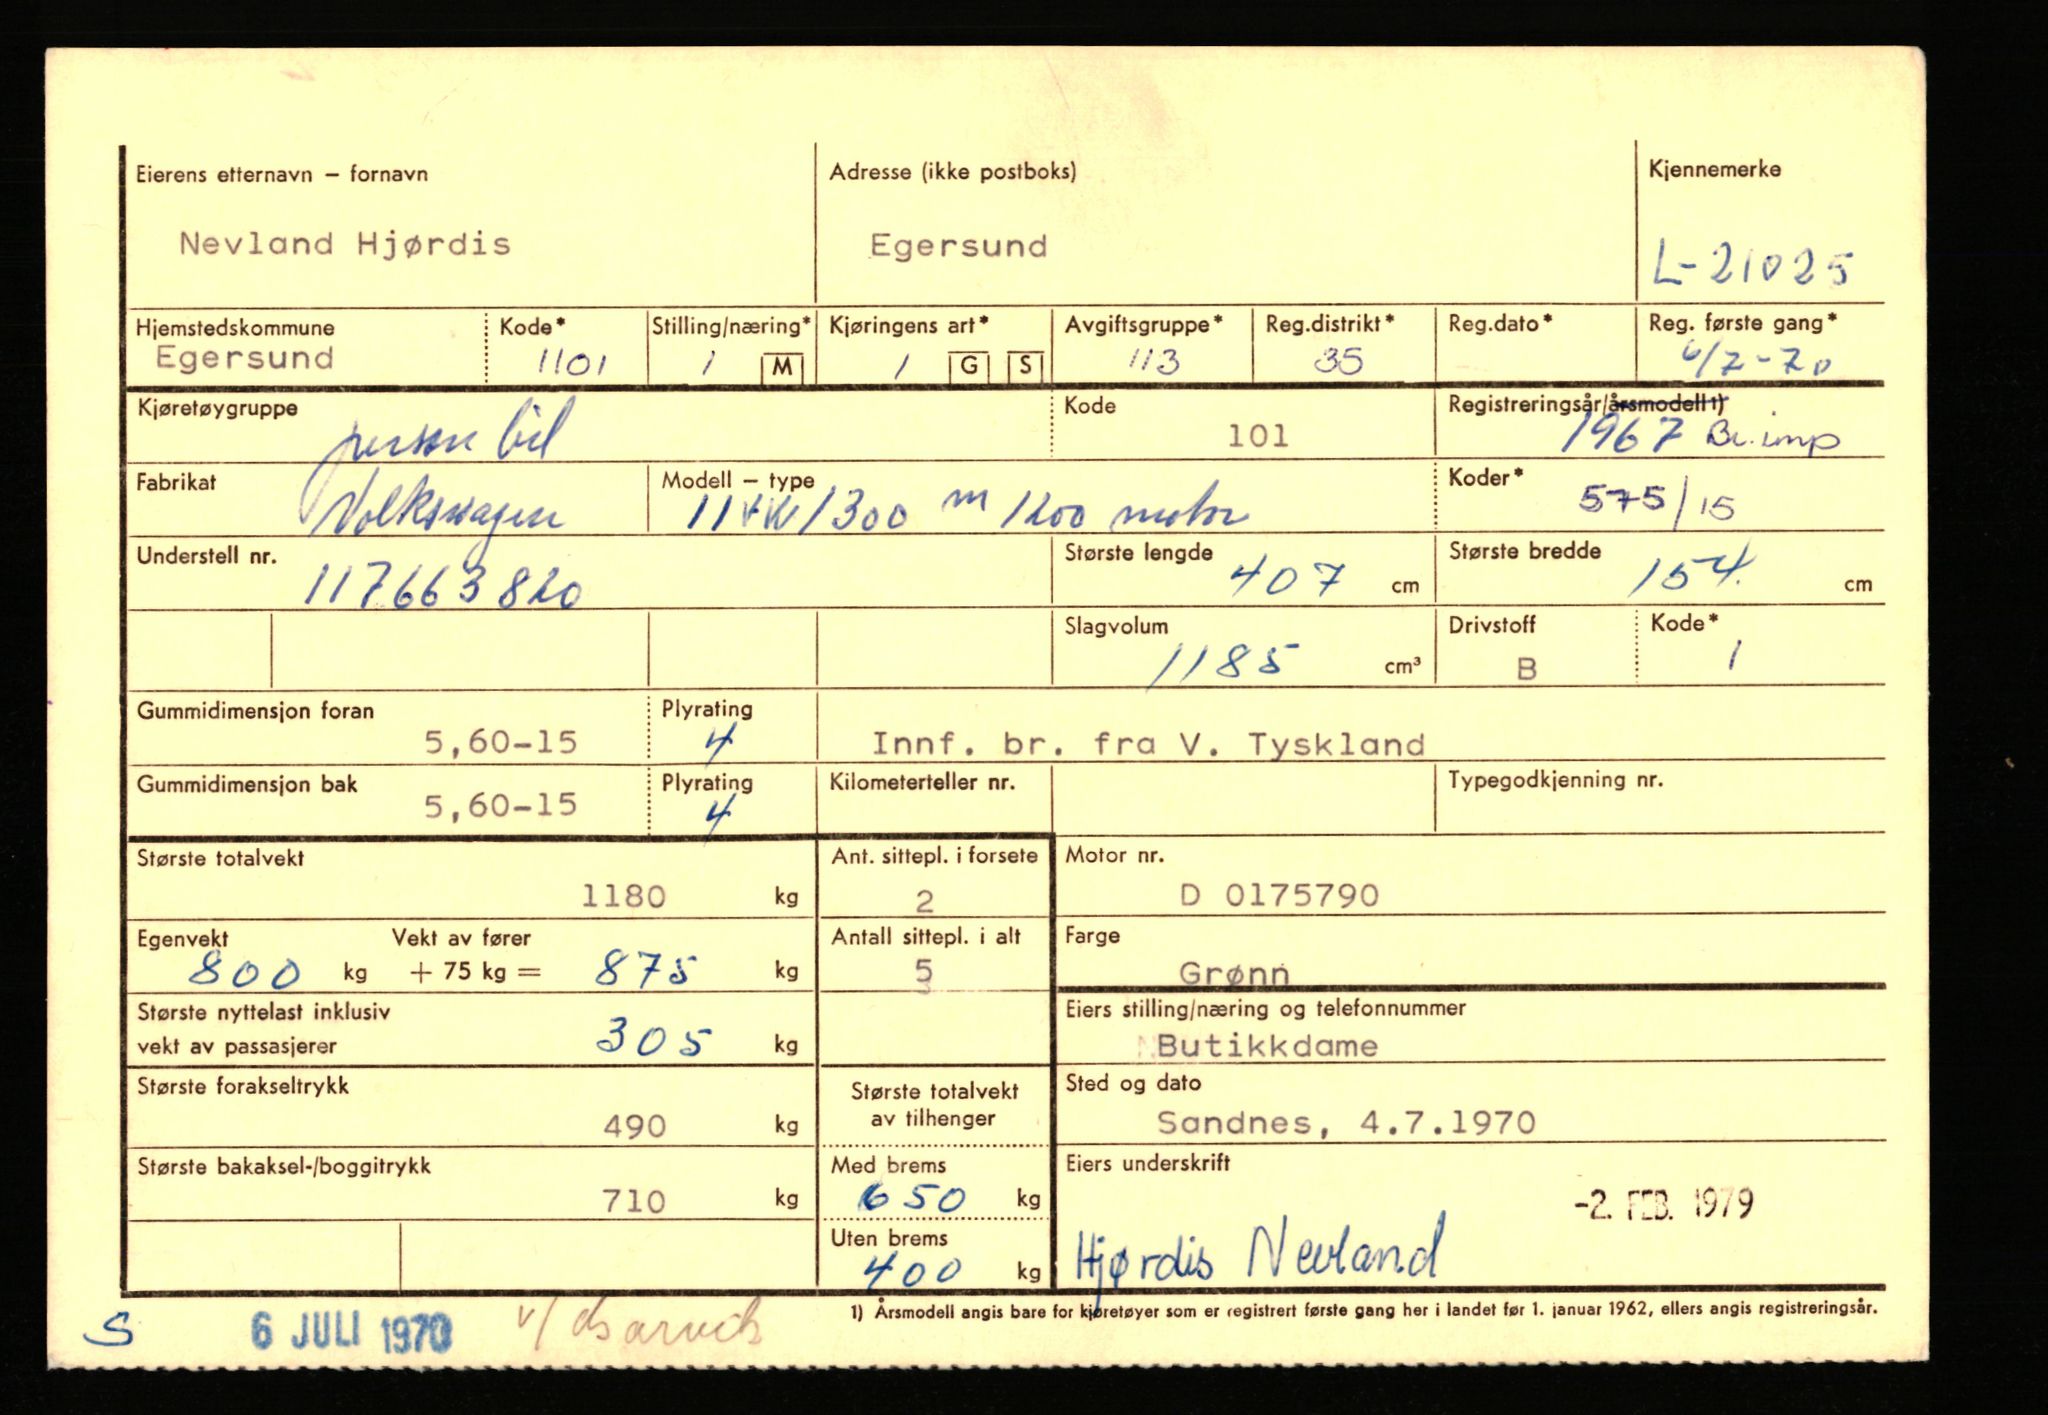 Eierens etternavn – fornavn
Adresse (ikke postboks)
Kjennemerke
Nevland Hjørdis
Egersund
L-21025
Hjemstedskommune
Kode*
Stilling/næring*
Kjøringens art*
Avgiftsgruppe*
Reg.distrikt*
Reg.dato*
Reg. første gang*
Egersund
1101
1 M
1 G S
113
35
6/7-70
Kjøretøygruppe
person bil
Kode
101
Registreringsår/årsmodell 1)
1967 Br. imp
Fabrikat
Volkswagen
Modell – type
1300 m 1200 motor
Koder*
575/15
Understell nr.
117663820
Største lengde
407 cm
Største bredde
154 cm
Slagvolum
1185 cm³
Drivstoff
B
Kode*
1
Gummidimensjon foran
5,60-15
Plyrating
4
Innf. br. fra V. Tyskland
Gummidimensjon bak
5,60-15
Plyrating
4
Kilometerteller nr.
Typegodkjenning nr.
Største totalvekt
1180 kg
Ant. sittepl. i forsete
2
Motor nr.
D 0175790
Egenvekt
800 kg
Vekt av fører
+ 75 kg = 875 kg
Antall sittepl. i alt
5
Farge
Grønn
Største nyttelast inklusiv
vekt av passasjerer
305 kg
Eiers stilling/næring og telefonnummer
Butikkdame
Største forakseltrykk
490 kg
Største totalvekt
av tilhenger
Sted og dato
Sandnes, 4.7.1970
Største bakaksel-/boggitrykk
710 kg
Med brems
650 kg
Eiers underskrift
-2. FEB. 1979
Uten brems
400 kg
Hjørdis Nevland
1) Årsmodell angis bare for kjøretøyer som er registrert første gang her i landet før 1. januar 1962, ellers angis registreringsår.
S
6 JULI 1970